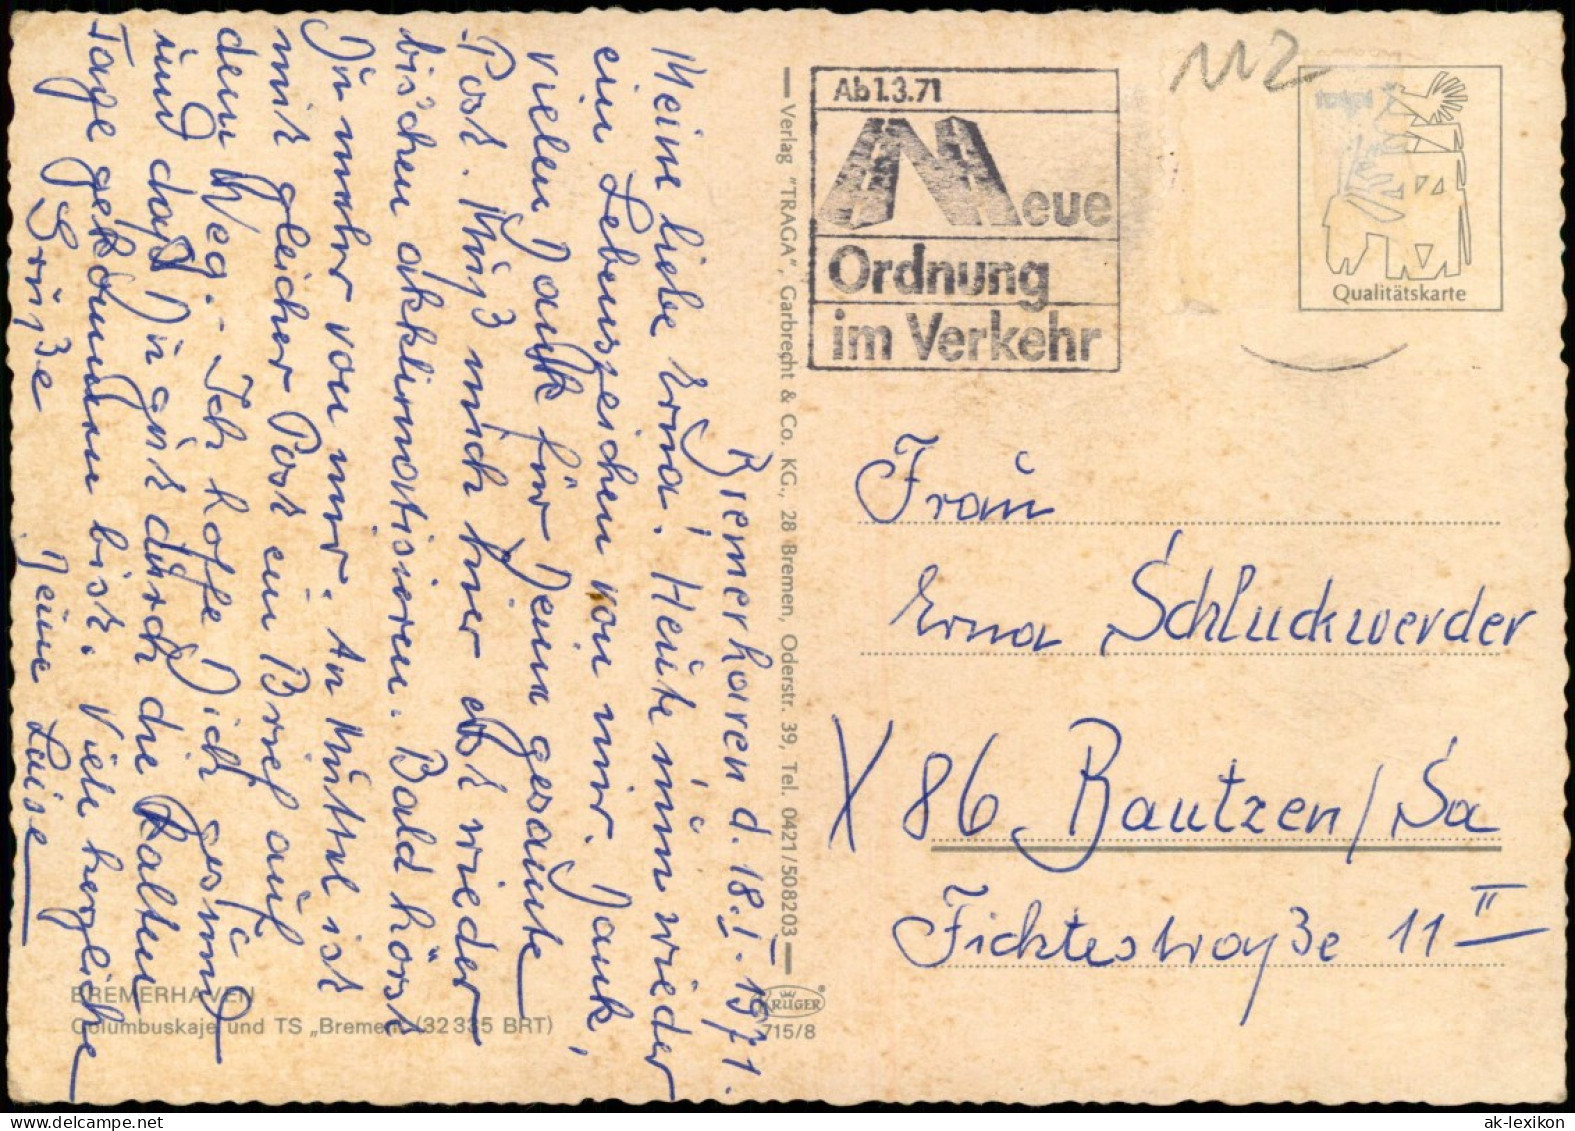 Bremerhaven d. 18.I.1971.
Meine liebe Erna! Heute nun wieder
ein Lebenszeichen von mir. Dank,
vielen Dank für Deine gesandte
Post. Muß mich hier erst wieder
bischen akklimatisieren. Bald hörst
Du mehr von mir. An Muttel ist
mit gleicher Post ein Brief auf
dem Weg. - Ich hoffe Dich gesund
und daß Du gut durch die kalten
Tage gekommen bist. Viele herzliche
Grüße Deine Luise
BREMERHAVEN
Columbuskaje und TS „Bremen" (32 335 BRT)
Verlag "TRAGA", Garbrecht & Co. KG., 28 Bremen, Oderstr. 39, Tel. 0421/508203
KRÜGER
715/8
Ab 1.3.71
Neue
Ordnung
im Verkehr
112
Qualitätskarte
Frau
Erna Schluckwerder
X 86 Bautzen/Sa
Fichtestraße 11 II
ak-lexikon